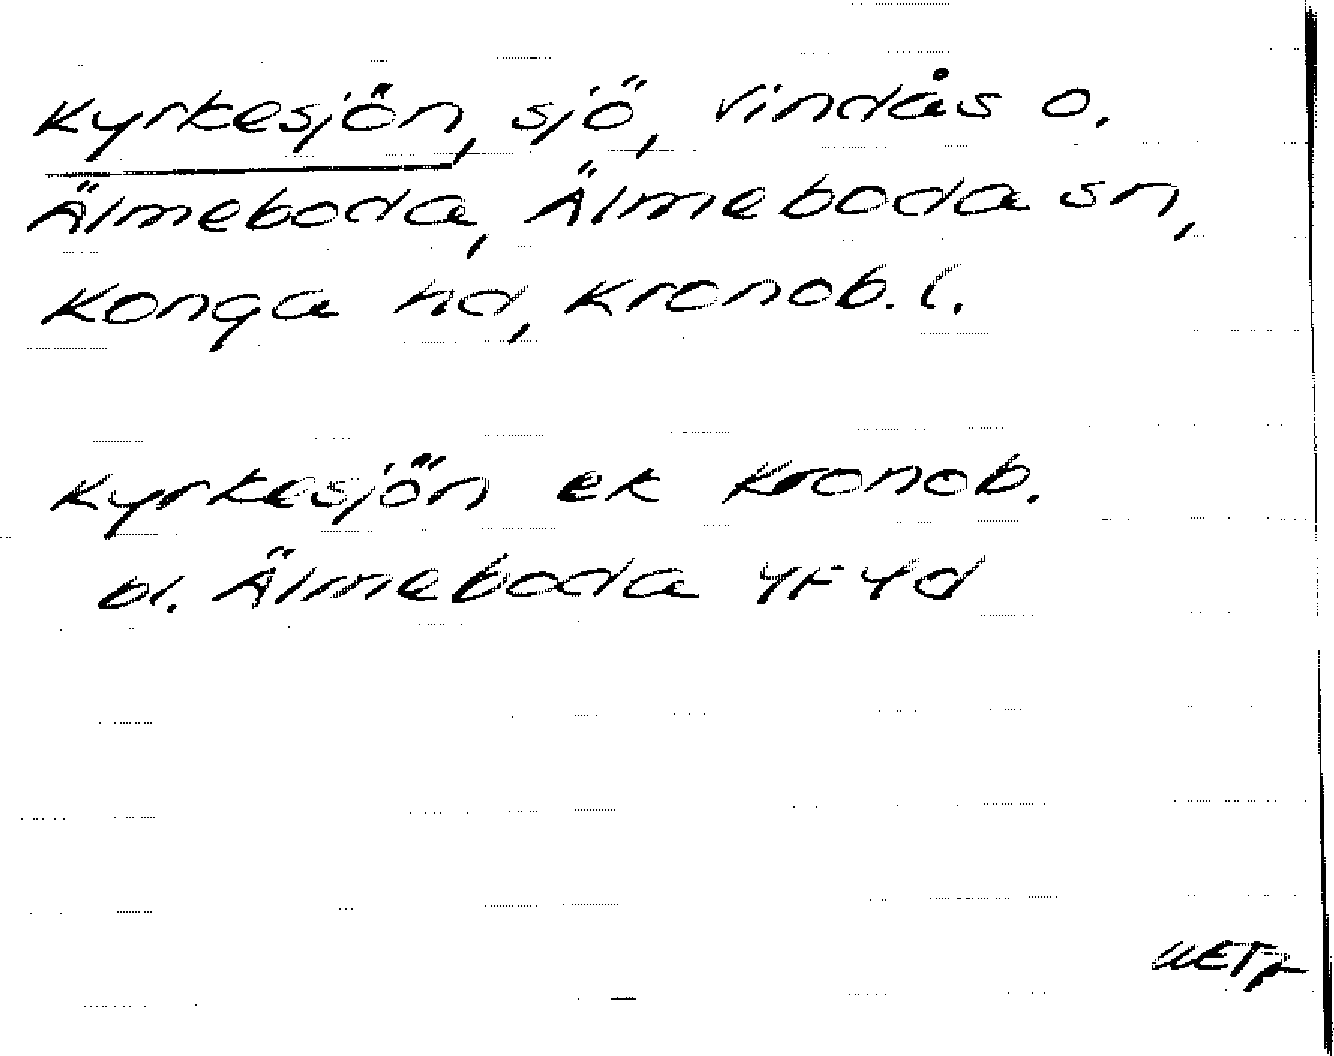 Kyrkesjön, sjö, Vindås o.
Älmeboda, Älmeboda sn,
Konga hd, Kronob. l.
Kyrkesjön ek Kronob.
bl. Älmeboda 4F4d